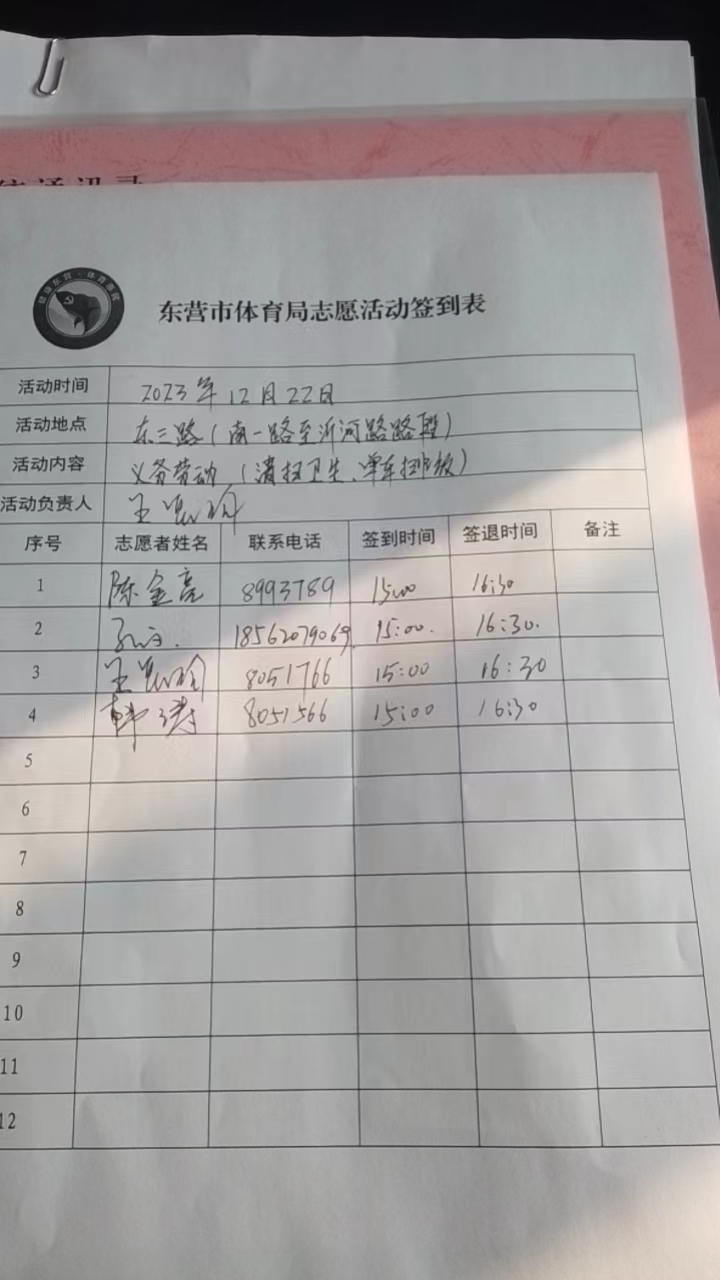 东营市体育局志愿活动签到表
活动时间 2023年12月22日
活动地点 东三路(南一路至沂河路路段)
活动内容 义务劳动(清扫卫生、单车排放)
活动负责人 王
序号 志愿者姓名 联系电话 签到时间 签退时间 备注
1 陈金亮 8993789 15:00 16:30
2 18562079069 15:00. 16:30.
3 王 8051766 15:00 16:30
4 韩涛 8051566 15:00 16:30
5
6
7
8
9
10
11
12